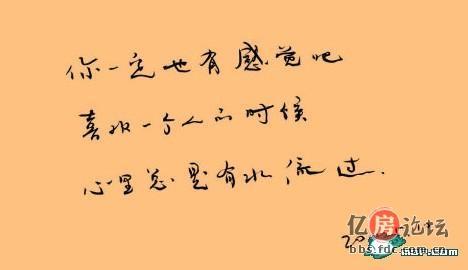 你一定也有感觉吧
喜欢一个人的时候
心里总是有水流过.
亿房论坛
bbs.fdc.com.cn